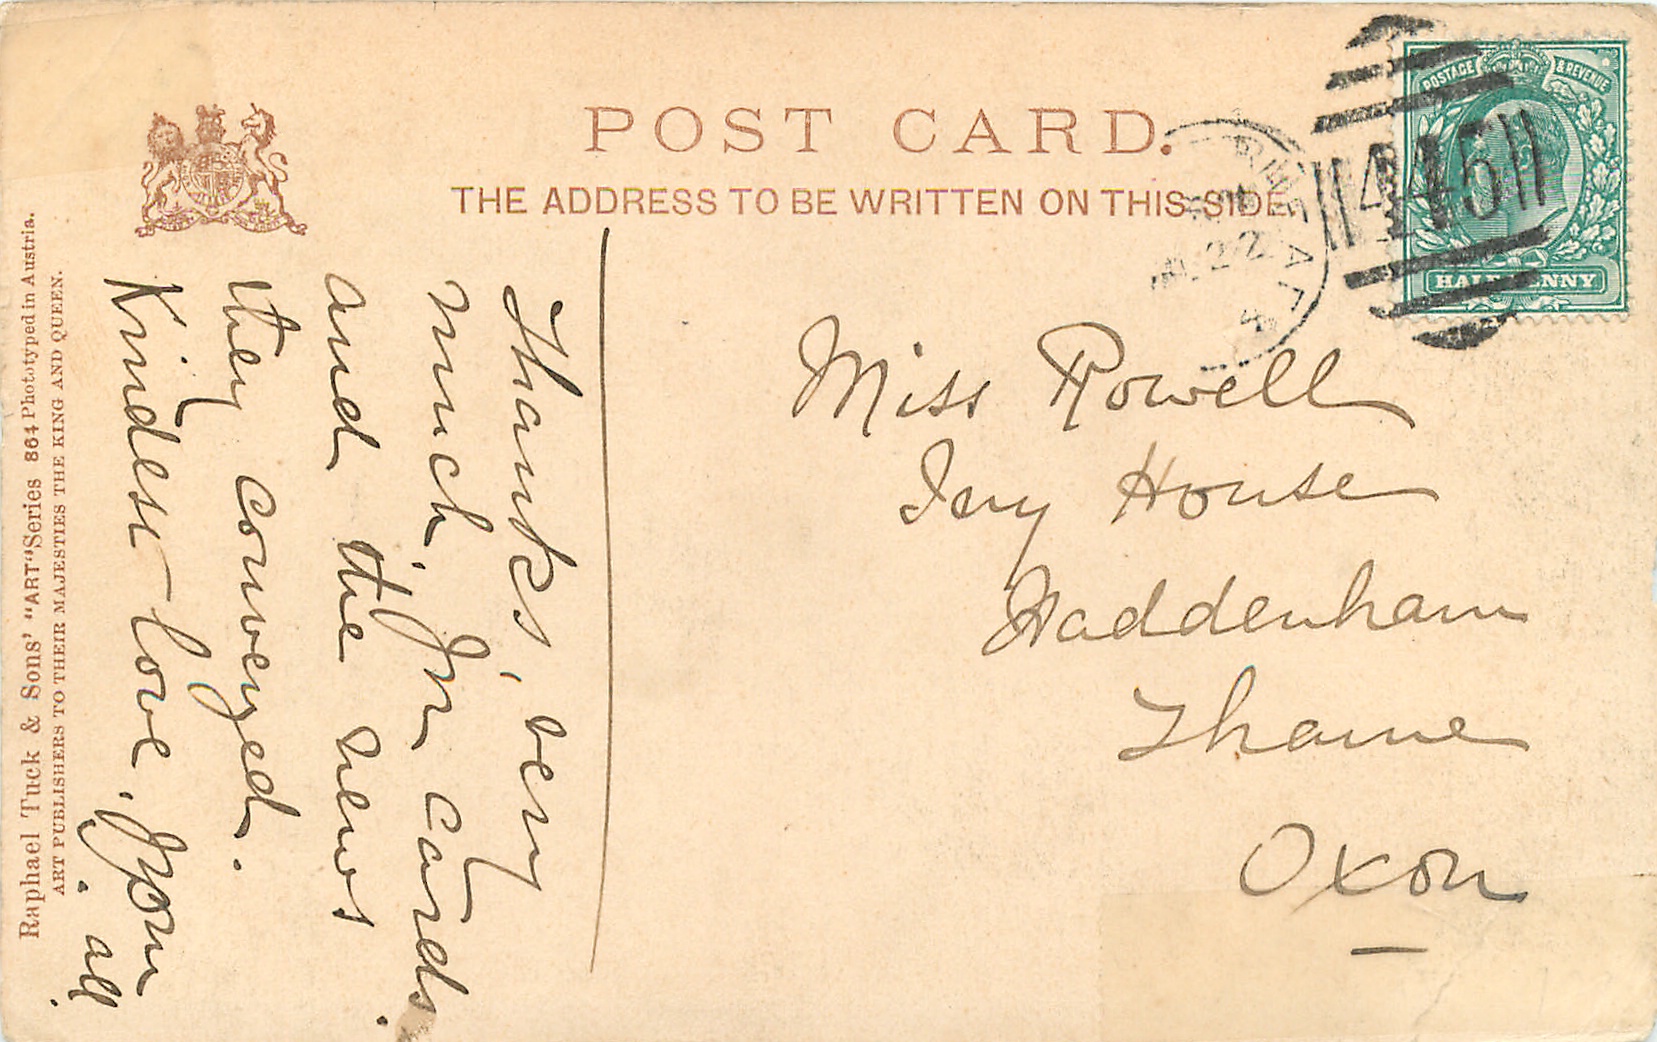 POST CARD.
THE ADDRESS TO BE WRITTEN ON THIS SIDE
POSTAGE & REVENUE
HALFPENNY
445
22
Raphael Tuck & Sons' "ART" Series 864 Phototyped in Austria.
ART PUBLISHERS TO THEIR MAJESTIES THE KING AND QUEEN.
Thanks, very
much, for cards
and the news
they conveyed.
Kindest love, from
all.
Miss Rowell
Ivy House
Haddenham
Thame
Oxon